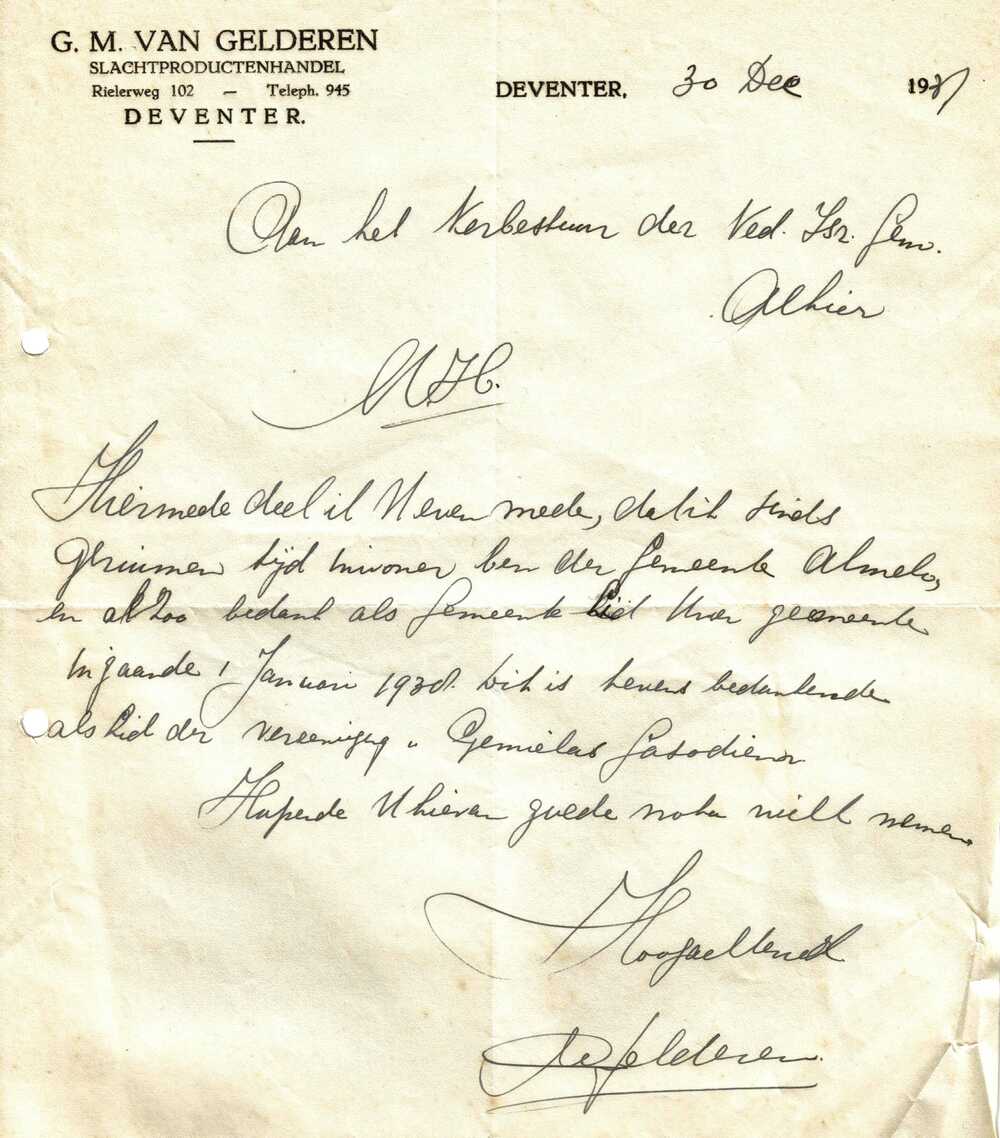 G. M. VAN GELDEREN
SLACHTPRODUCTENHANDEL
Rielerweg 102 — Teleph. 945
DEVENTER.
DEVENTER, 30 Dec 1937
Aan het Kerbestuur der Ned. Isr. Gem.
Alhier
M.H.
Hiermede deel ik U even mede, dat ik sinds
geruimen tijd inwoner ben der Gemeente Almelo,
en alzoo bedank als Gemeente Lid Uwer gemeente
ingaande 1 Januari 1938. tevens bedankende
als Lid der vereeniging „ Gemielas Gasodiem
Hopende U hiervan goede nota wilt nemen
Hoogachtend
v Gelderen.